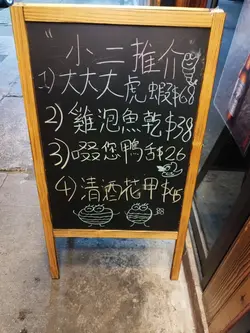 小二推介
1) 大大大虎蝦$68
2) 雞泡魚乾$38
3) 啜您鴨舌$26
4) 清酒花甲$45